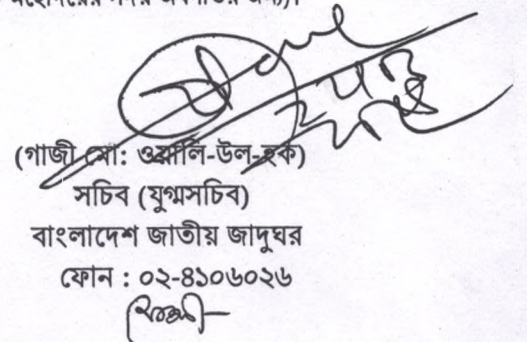 (গাজী মো: ওয়ালি-উল-হক)
সচিব (যুগ্মসচিব)
বাংলাদেশ জাতীয় জাদুঘর
ফোন : ০২-৪১০৬০২৬